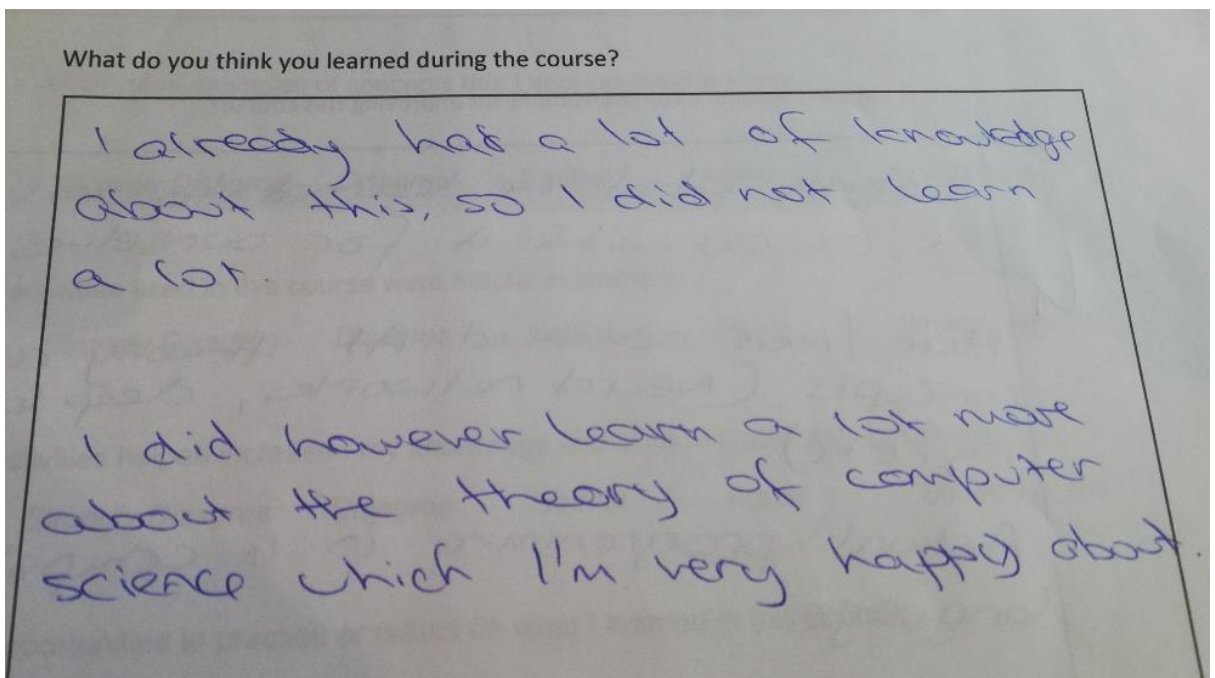 What do you think you learned during the course?
I already had a lot of knowledge
about this, so I did not learn
a lot.
I did however learn a lot more
about the theory of computer
science which I'm very happy about.